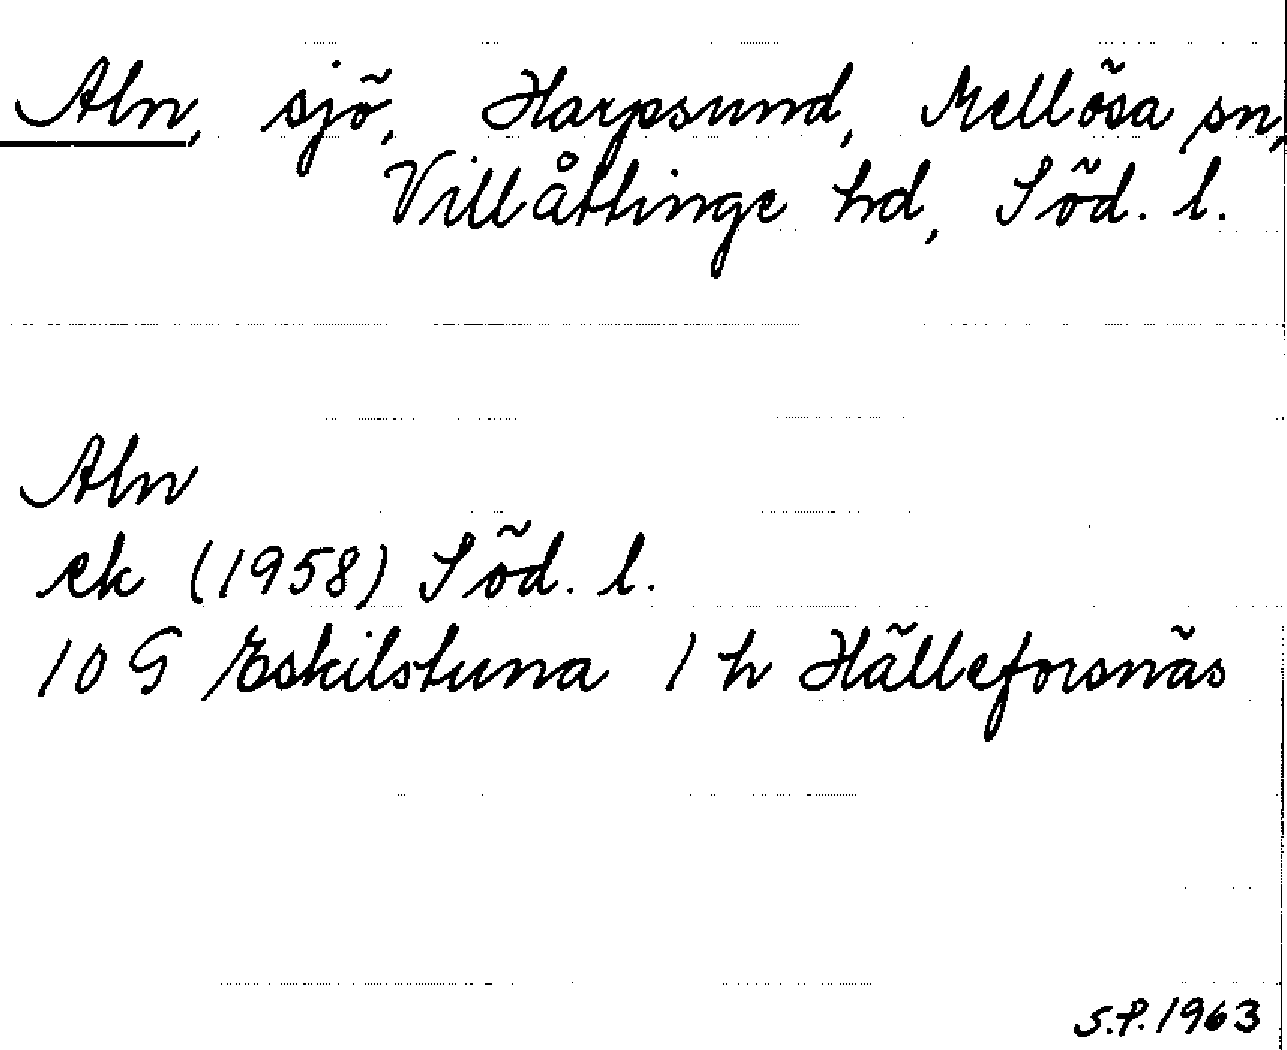 Aln, sjö, Harpsund, Mellösa sn,
Villåttinge hd, Söd. l.
Aln
ek (1958) Söd. l.
10 G Eskilstuna 1 h Hälleforsnäs
S.P. 1963